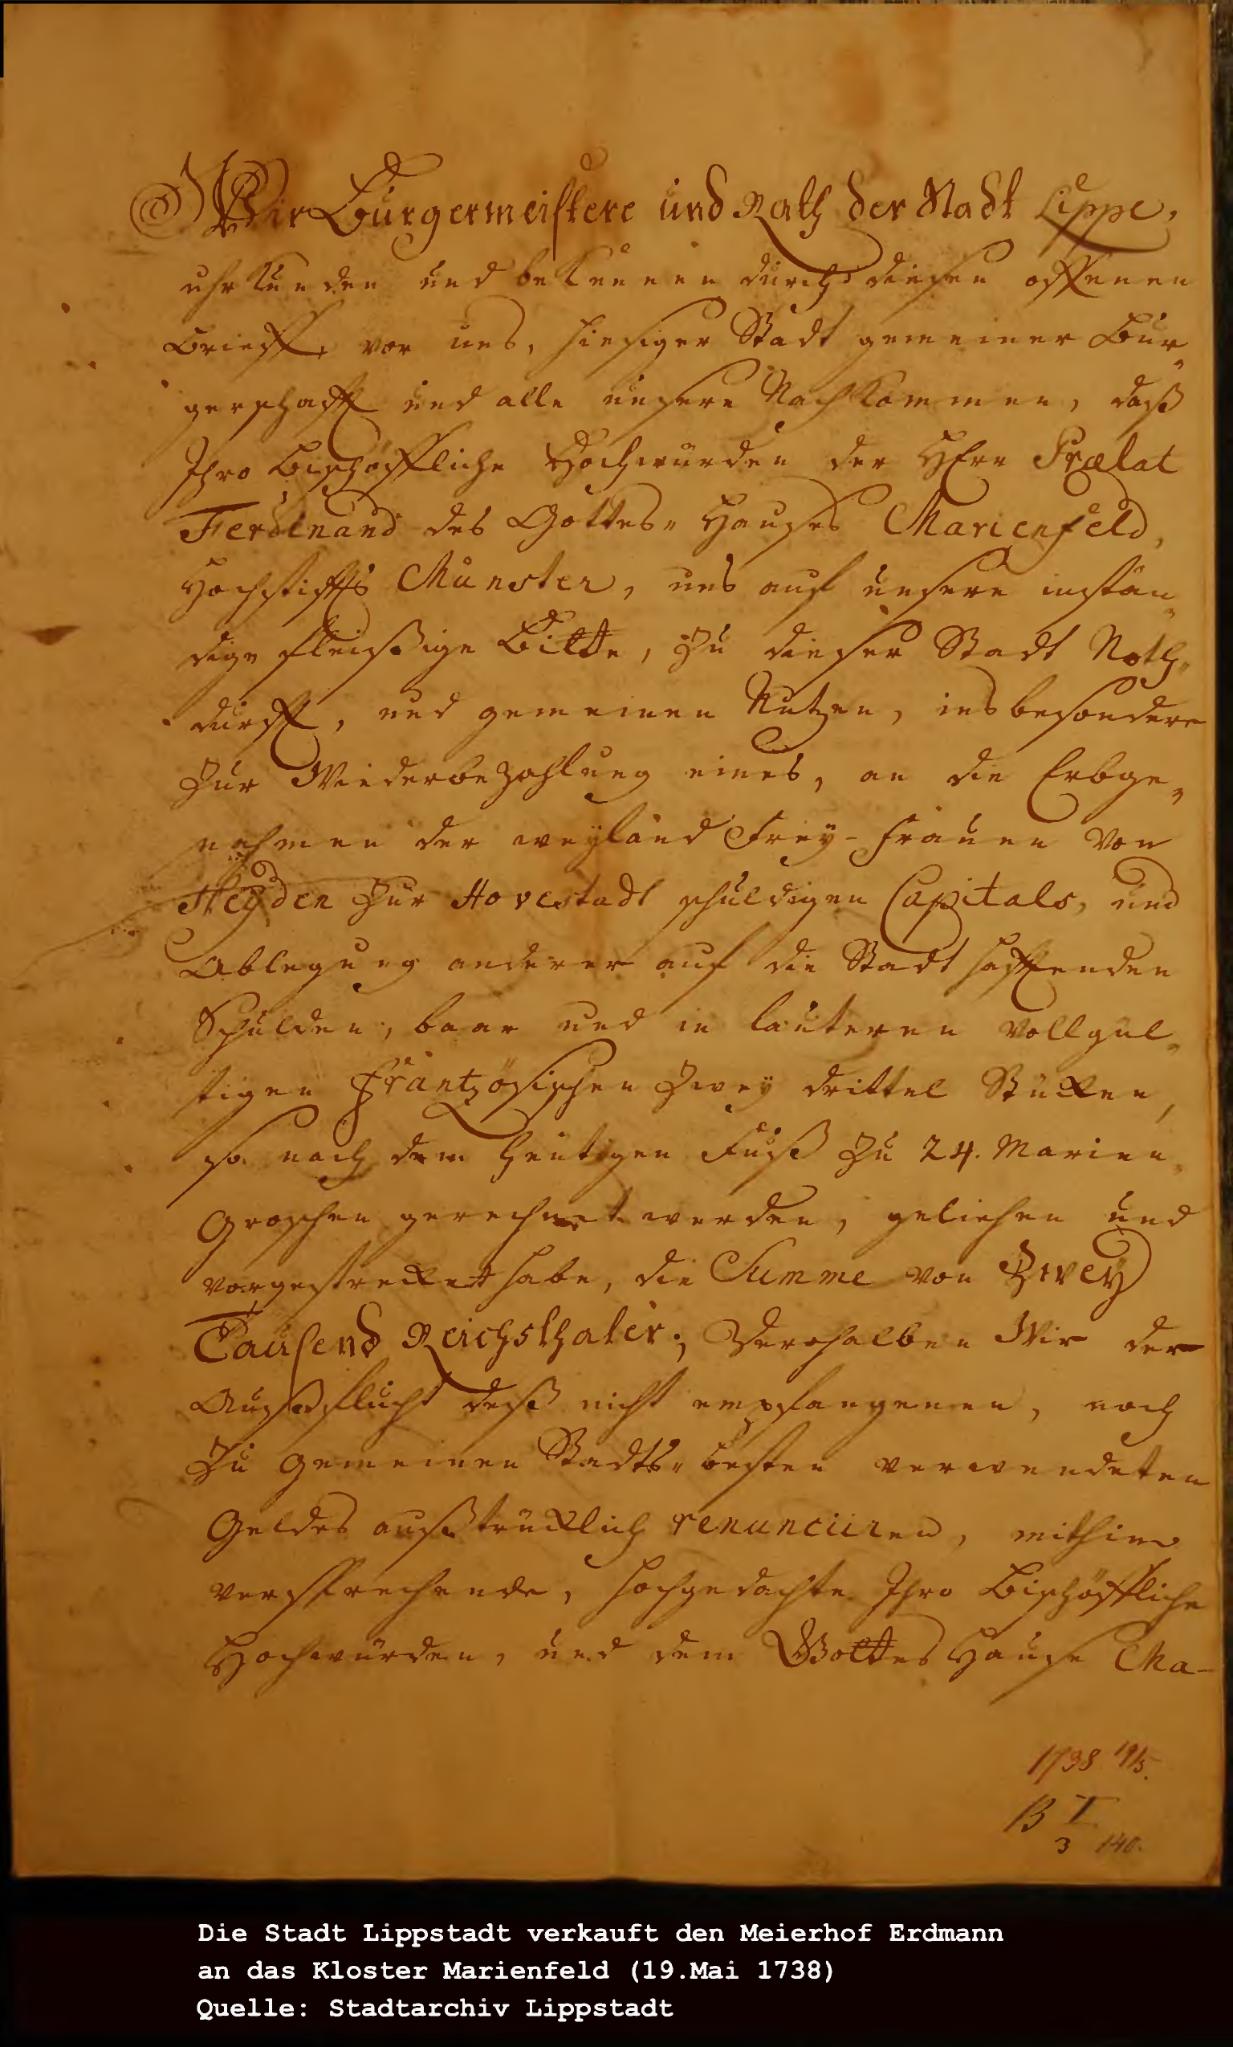 Wir Bürgermeistere und Rath der Stadt Lippe,
uhrkunden und bekennen durch diesen offenen
Brieff, vor uns, hiesiger Stadt gemeiner Bür„
gerschafft und alle unsere Nachkommen, daß
Ihro Bischöffliche Hochwürden der HErr Prælat
Ferdinand des Gottes„ Hauses Marienfeld,
Hochstiffts Münster, uns auf unsere instän„
dige fleißige Bitte, zu dieser Stadt Noth„
durfft, und gemeinen Nutzen, insbesondere
zur Wiederbezahlung eines, an die Erbge„
nahmen der weyland Frey-Frauen von
Heyden zur Hovestadt schuldigen Capitals, und
Ablegung anderer auf die Stadt hafftenden
Schulden, baar und in lauteren vollgül„
tigen Frantzösischen zwey drittel Stücken,
so nach dem heutigen Fuß zu 24. Marien„
Groschen gerechnet werden, geliehen und
vorgestrecket habe, die Summe von Zwey
Tausend Reichsthaler; Dershalben Wir der
Ausflucht deß nicht empfangenen, noch
zu gemeinen Stadts„ besten verwendeten
Geldes außtrücklich renunciiren, mithin
versprechende, hochgedachte Ihro Bischöffliche
Hochwürden, und dem Gottes Hause Ma-
1738 19/5.
B I
3 140.
Die Stadt Lippstadt verkauft den Meierhof Erdmann
an das Kloster Marienfeld (19.Mai 1738)
Quelle: Stadtarchiv Lippstadt